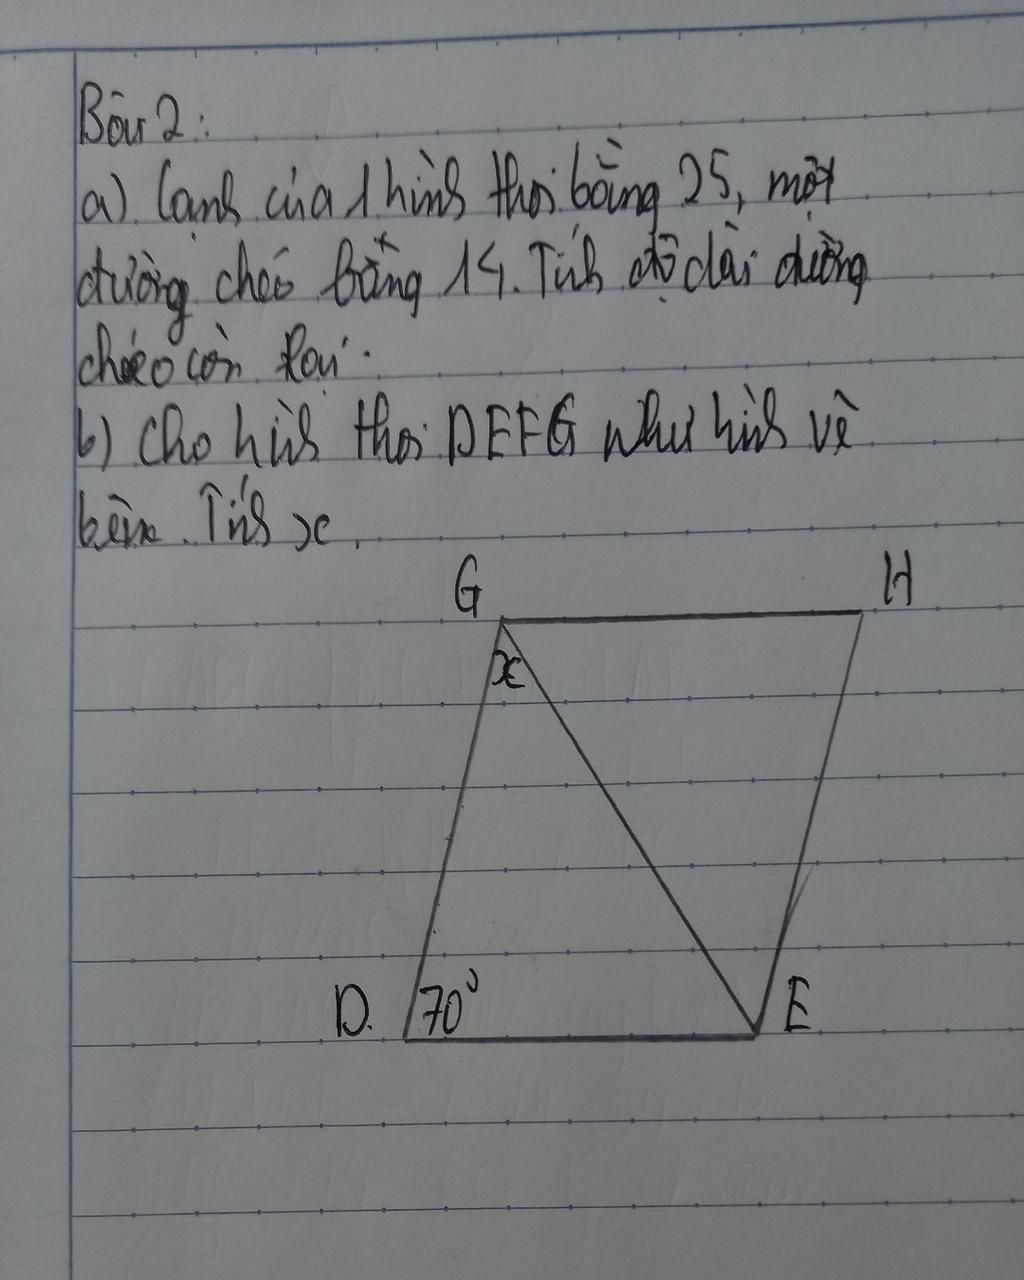 Bài 2:
a) Cạnh của 1 hình thoi bằng 25, một
đường chéo bằng 14. Tính độ dài đường
chéo còn lại.
b) Cho hình thoi DEFG như hình vẽ
bên. Tính x.
G
H
x
D.
70°
E